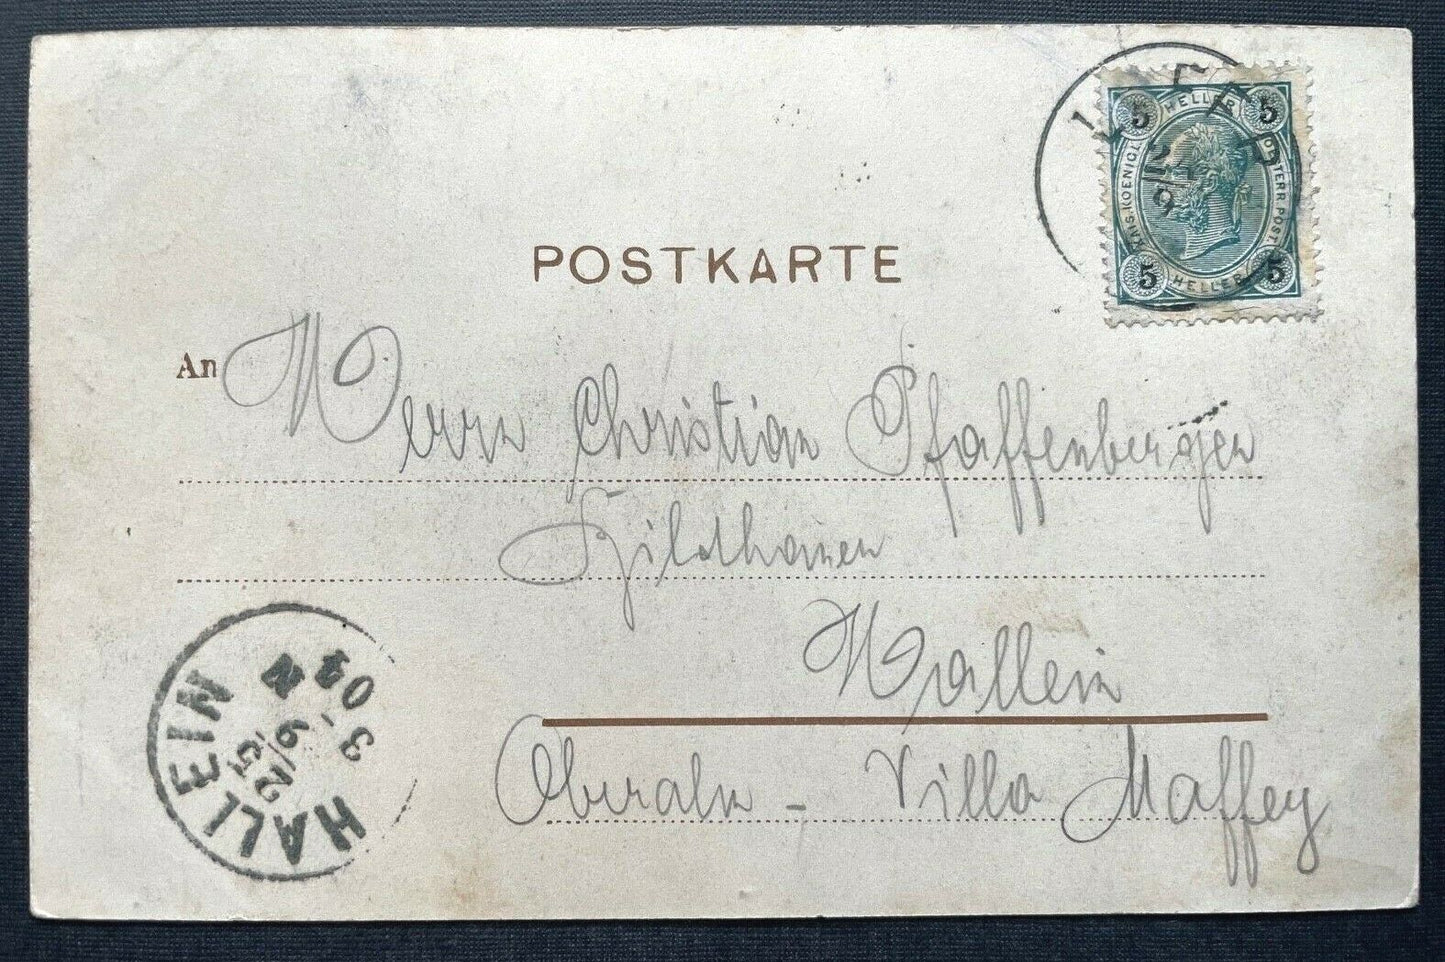 5 HELLER 5
KAIS. KOENIGL. OESTERR. POST
5 HELLER 5
LOFER
POSTKARTE
An Herrn Christian Pfaffenberger
Bildhauer
Hallein
Oberalm - Villa Maffey
HALLEIN
3